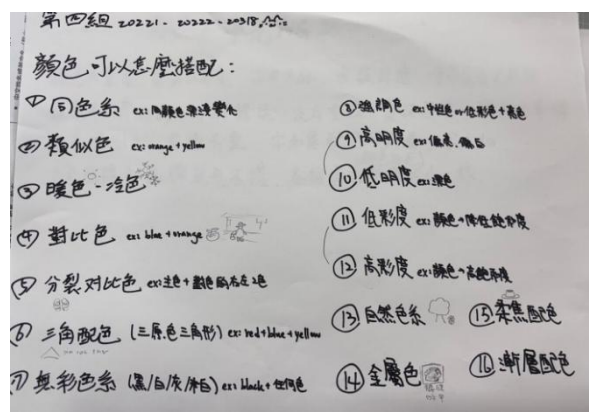 第四組 20221、20222、20318
顏色可以怎麼搭配：
① 同色系 ex: 同顏色漸淺變化
② 類似色 ex: orange + yellow
③ 暖色-冷色
④ 對比色 ex: blue + orange
⑤ 分裂对比色 ex: 主色 + 對色的右左2色
⑥ 三角配色 (三原色三角形) ex: red + blue + yellow
⑦ 無彩色系 (黑/白/灰/米白) ex: black + 任何色
⑧ 強調色 ex: 中性色 or 低彩色 + 亮色
⑨ 高明度 ex:
⑩ 低明度 ex: 深色
⑪ 低彩度 ex: 顏色 + 降低飽和度
⑫ 高彩度 ex: 顏色 + 高飽和度
⑬ 自然色系
⑭ 金屬色
⑮ 焦配色
⑯ 漸層配色